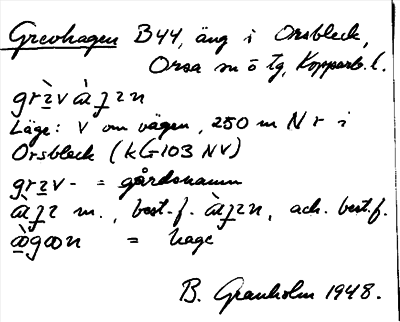 Grevhagen B44, äng i Orsbleck,
Orsa sn ö tg, Kopparb. l.
Läge: V om vägen, 250 m N r i
Orsbleck (kG103 NV)
= gårdsnamn
m., best. f. , ack. best. f.
= hage
B. Granholm 1948.